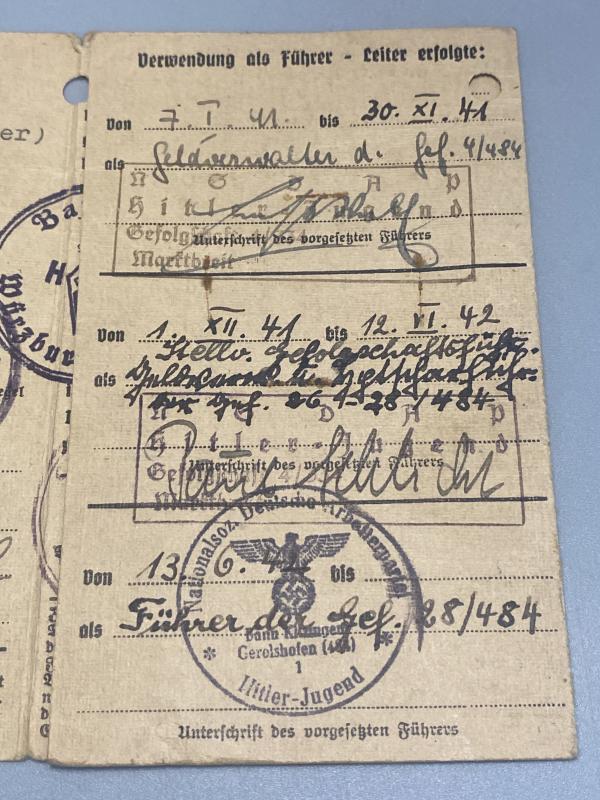 er)
Verwendung als Führer - Leiter erfolgte:
von 7. I. 41. bis 30. XI. 41
als Geldverwalter d. Gef. 4/484
N S D A P
Hitler-Jugend
Gefolgschaft 4/484
Marktbreit
Unterschrift des vorgesetzten Führers
Ba
H
Würzburg
von 1. XII. 41 bis 12. VI. 42
Stellv. Gefolgschaftsführ.
als Geldverw. u. Hptscharführ.
der Gef. 26 - 28/484
N S D A P
Hitler-Jugend
Unterschrift des vorgesetzten Führers
Nationalsoz. Deutsche Arbeiterpartei
von 13. 6. 42 bis
als Führer der Gef. 28/484
Bann Kitzingen
Gerolshofen (484)
1
Hitler-Jugend
Unterschrift des vorgesetzten Führers